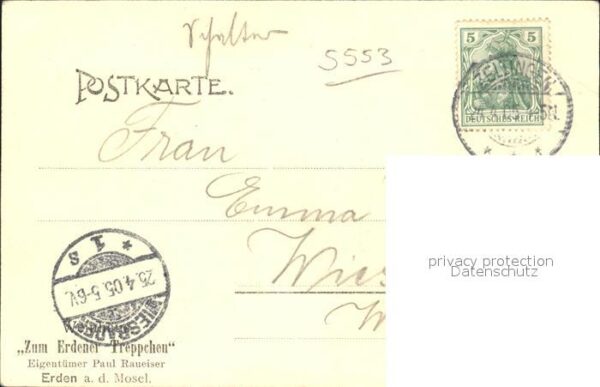 5 5
DEUTSCHES REICH
S553
POSTKARTE.
ZELTINGEN
Frau
Emma
Wies
privacy protection
Datenschutz
1 s
25.4.05. 5-6 V.
WIESBADEN
„Zum Erdener Treppchen"
Eigentümer Paul Raueiser
Erden a. d. Mosel.